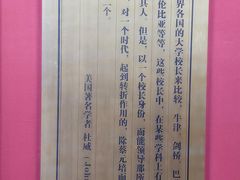 界各国的大学校长来比较，牛津、剑桥、巴
伦比亚等等，这些校长中，在某些学科上有
其人，但是，以一个校长身份，而能领导那所
对一个时代，起到转折作用的，除蔡元培而
个。”
美国著名学者 杜威（Joh